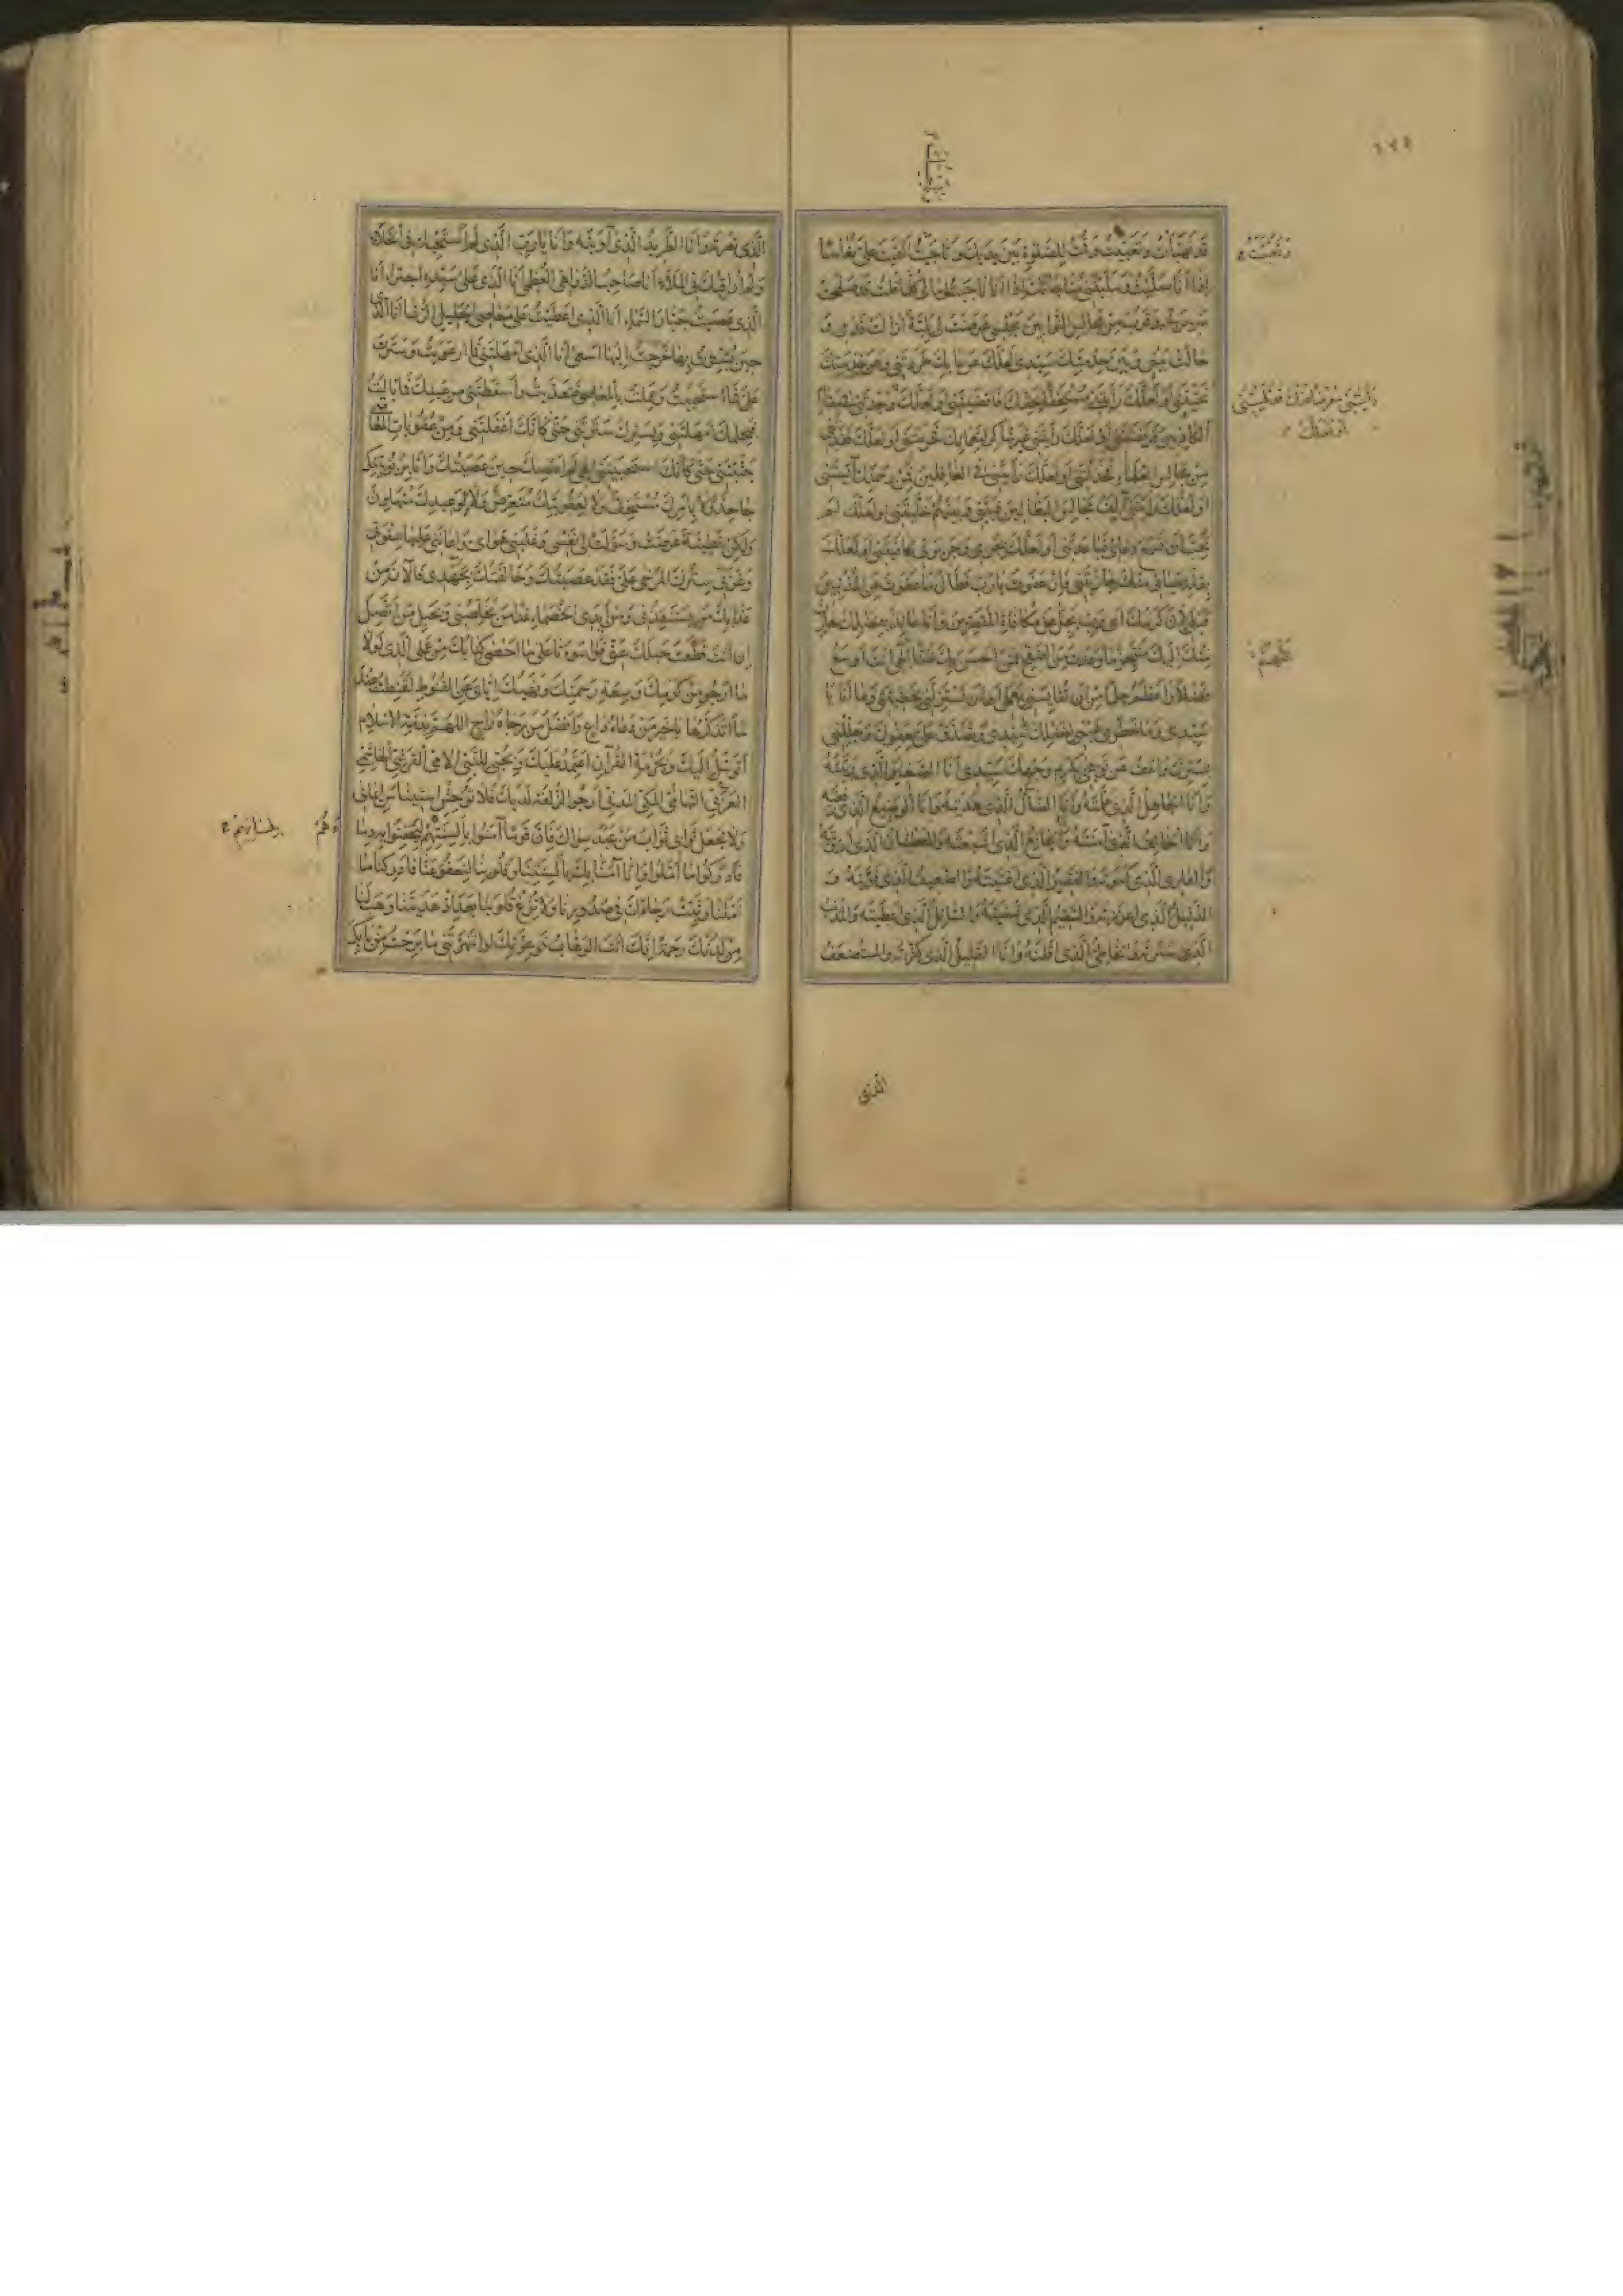 قد تهيأت وتعبيت وقمت للصلوة بين يديك وناجيتك القيت علي نعاسا
اذا انا صليت وسلبتني مناجاتك اذا انا ناجيت مالي كلما قلت قد صلحت
سريرتي وقرب من مجالس التوابين مجلسي عرضت لي بلية ازالت قدمي و
حالت بيني وبين خدمتك سيدي لعلك عن بابك طردتني وعن خدمتك
نحيتني او لعلك رأيتني مستخفا بحقك فاقصيتني او لعلك وجدتني في مقام
الكاذبين فرفضتني او لعلك رأيتني غير شاكر لنعمائك فحرمتني او لعلك فقدتني
من مجالس العلماء فخذلتني او لعلك رأيتني في الغافلين فمن رحمتك آيستني
او لعلك رأيتني آلف مجالس البطالين فبيني وبينهم خليتني او لعلك لم
تحب ان تسمع دعائي فباعدتني او لعلك بجرمي وجريرتي كافيتني او لعلك
بقلة حيائي منك جازيتني فان عفوت يا رب فطال ما عفوت عن المذنبين
قبلي لان كرمك اي رب يجل عن مكافاة المقصرين وانا عائذ بفضلك هارب
منك اليك متنجز ما وعدت من الصفح عمن احسن بك ظنا الهي انت اوسع
فضلا واعظم حلما من ان تقايسني بعملي او ان تستزلني بخطيئتي وما انا يا
سيدي وما خطري هبني بفضلك سيدي وتصدق علي بعفوك وجللني
بسترك واعف عن توبيخي بكرم وجهك سيدي انا الصغير الذي ربيته
وانا الجاهل الذي علمته وانا الضال الذي هديته وانا الوضيع الذي رفعته
وانا الخائف الذي آمنته والجائع الذي اشبعته والعطشان الذي ارويته
والعاري الذي كسوته والفقير الذي اغنيته والضعيف الذي قويته و
الذليل الذي اعززته والسقيم الذي شفيته والسائل الذي اعطيته والمذنب
الذي سترته والخاطئ الذي اقلته وانا القليل الذي كثرته والمستضعف
الذي
الذي نصرته وانا الطريد الذي آويته وانا يا رب الذي لم استحيك في الخلاء
ولم اراقبك في الملاء انا صاحب الدواهي العظمى انا الذي على سيده اجترا انا
الذي عصيت جبار السماء انا الذي اعطيت على معاصي الجليل الرشا انا الذي
حين بشرت بها خرجت اليها اسعى انا الذي امهلتني فما ارعويت وسترت
علي فما استحييت وعملت بالمعاصي فتعديت واسقطتني من عينك فما باليت
فبحلمك امهلتني وبسترك سترتني حتى كأنك اغفلتني ومن عقوبات المعاصي
جنبتني حتى كأنك استحييتني الهي لم اعصك حين عصيتك وانا بربوبيتك
جاحد ولا بامرك مستخف ولا لعقوبتك متعرض ولا لوعيدك متهاون
ولكن خطيئة عرضت وسولت لي نفسي وغلبني هواي واعانني عليها شقوتي
وغرني سترك المرخى علي فقد عصيتك وخالفتك بجهدي فالآن من
عذابك من يستنقذني ومن ايدي الخصماء غدا من يخلصني وبحبل من اتصل
ان انت قطعت حبلك عني فوا سوءتا على ما احصى كتابك من عملي الذي لولا
ما ارجو من كرمك وسعة رحمتك ونهيك اياي عن القنوط لقنطت عند
ما اتذكرها يا خير من دعاه داع وافضل من رجاه راج اللهم بذمة الاسلام
اتوسل اليك وبحرمة القرآن اعتمد عليك وبحبي للنبي الامي القرشي الهاشمي
العربي التهامي المكي المدني ارجو الزلفة لديك فلا توحش استيناس ايماني
ولا تجعل ثوابي ثواب من عبد سواك فان قوما آمنوا بالسنتهم ليحقنوا به دماءهم
فادركوا ما املوا وانا آمنا بك بالسنتنا وقلوبنا لتعفو عنا فادركنا ما
املنا وثبت رجاءك في صدورنا ولا تزغ قلوبنا بعد اذ هديتنا وهب لنا
من لدنك رحمة انك انت الوهاب فوعزتك لو انتهرتني ما برحت من بابك